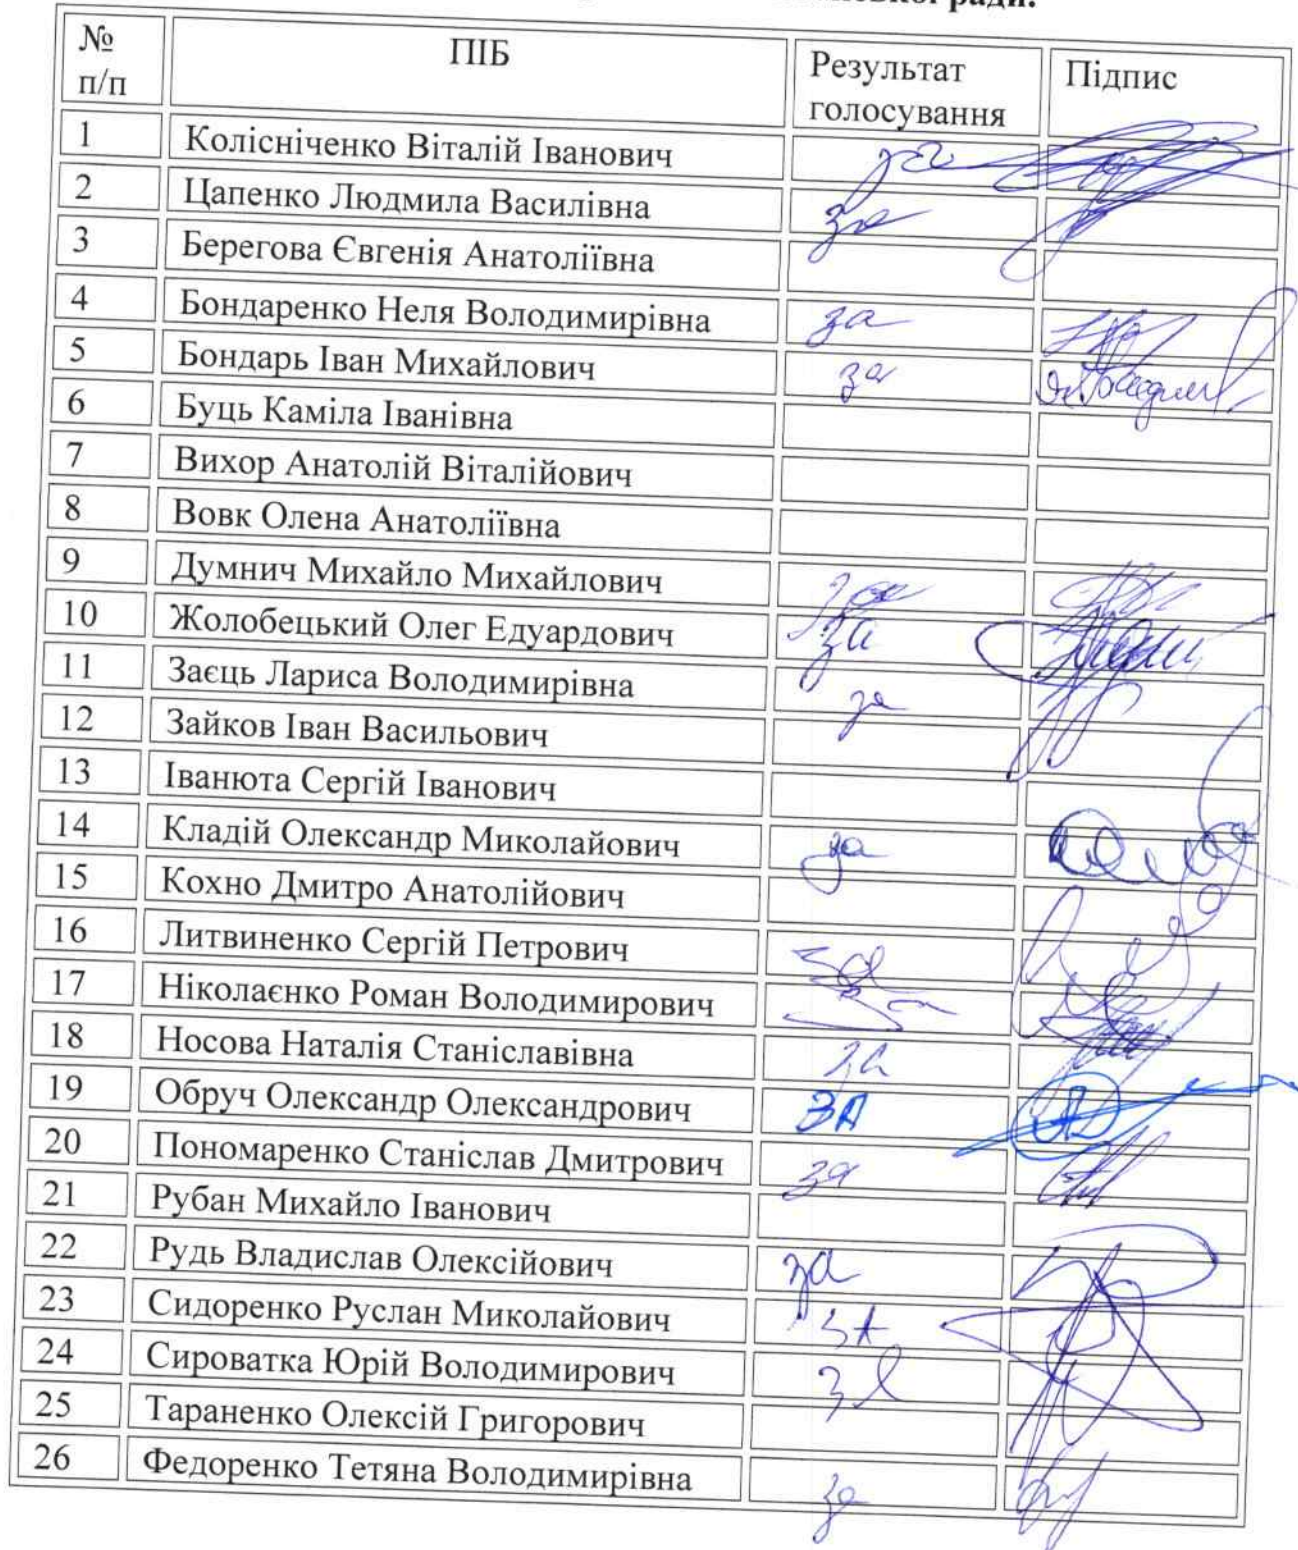 ради.
№ п/п ПІБ Результат голосування Підпис
1 Колісніченко Віталій Іванович за
2 Цапенко Людмила Василівна за
3 Берегова Євгенія Анатоліївна
4 Бондаренко Неля Володимирівна за
5 Бондарь Іван Михайлович за
6 Буць Каміла Іванівна
7 Вихор Анатолій Віталійович
8 Вовк Олена Анатоліївна
9 Думнич Михайло Михайлович за
10 Жолобецький Олег Едуардович за
11 Заєць Лариса Володимирівна за
12 Зайков Іван Васильович
13 Іванюта Сергій Іванович
14 Кладій Олександр Миколайович за
15 Кохно Дмитро Анатолійович
16 Литвиненко Сергій Петрович за
17 Ніколаєнко Роман Володимирович за
18 Носова Наталія Станіславівна за
19 Обруч Олександр Олександрович ЗА
20 Пономаренко Станіслав Дмитрович за
21 Рубан Михайло Іванович
22 Рудь Владислав Олексійович за
23 Сидоренко Руслан Миколайович ЗА
24 Сироватка Юрій Володимирович за
25 Тараненко Олексій Григорович
26 Федоренко Тетяна Володимирівна за